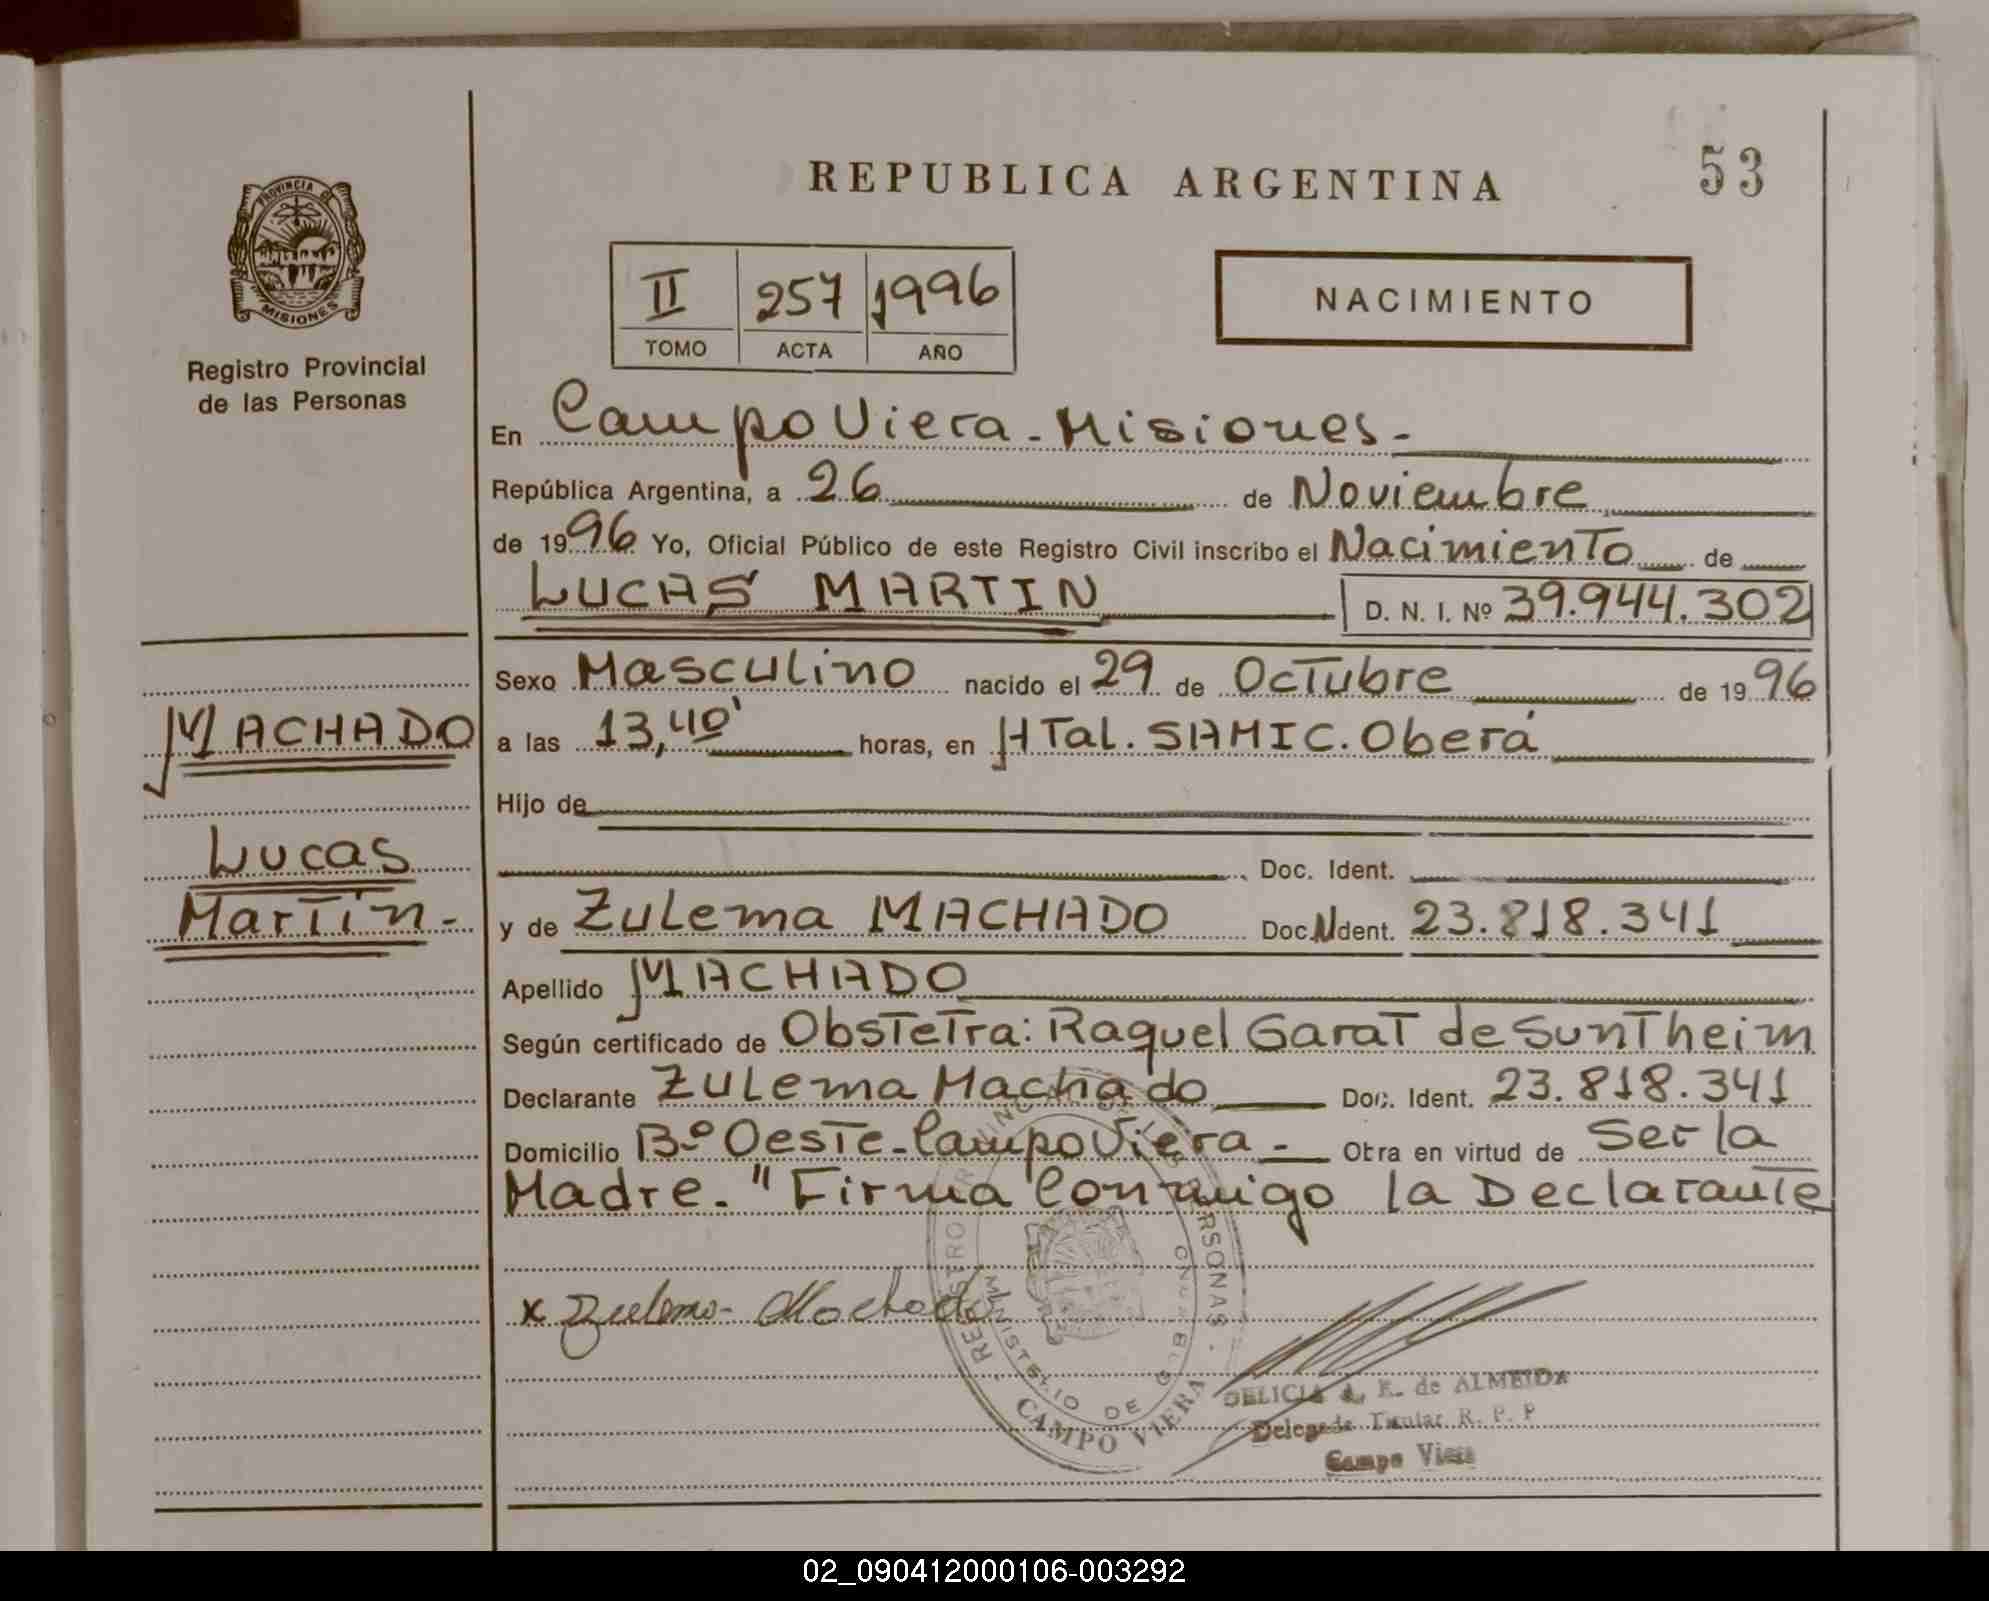 53
REPUBLICA ARGENTINA
PROVINCIA DE
MISIONES
Registro Provincial
de las Personas
II 257 1996
TOMO ACTA AÑO
NACIMIENTO
En Campo Viera - Misiones -
República Argentina, a 26 de Noviembre
de 1996 Yo, Oficial Público de este Registro Civil inscribo el Nacimiento de
LUCAS MARTIN D. N. I. Nº 39.944.302
Sexo Masculino nacido el 29 de Octubre de 1996
MACHADO
a las 13,40' horas, en HTal. SAMIC. Oberá
Hijo de
Lucas
Doc. Ident.
Martín -
y de Zulema MACHADO Doc. Ident. 23.818.341
Apellido MACHADO
Según certificado de Obstetra: Raquel Garat de Suntheim
Declarante Zulema Machado Doc. Ident. 23.818.341
Domicilio Bº Oeste - Campo Viera - Obra en virtud de Ser la
Madre. "Firma Conmigo la Declarante
x Zulema - Machado
CAMPO VIERA
DELICIA A. E. de ALMEIDA
Delegada Titular R. P. P
Campo Viera
02_090412000106-003292